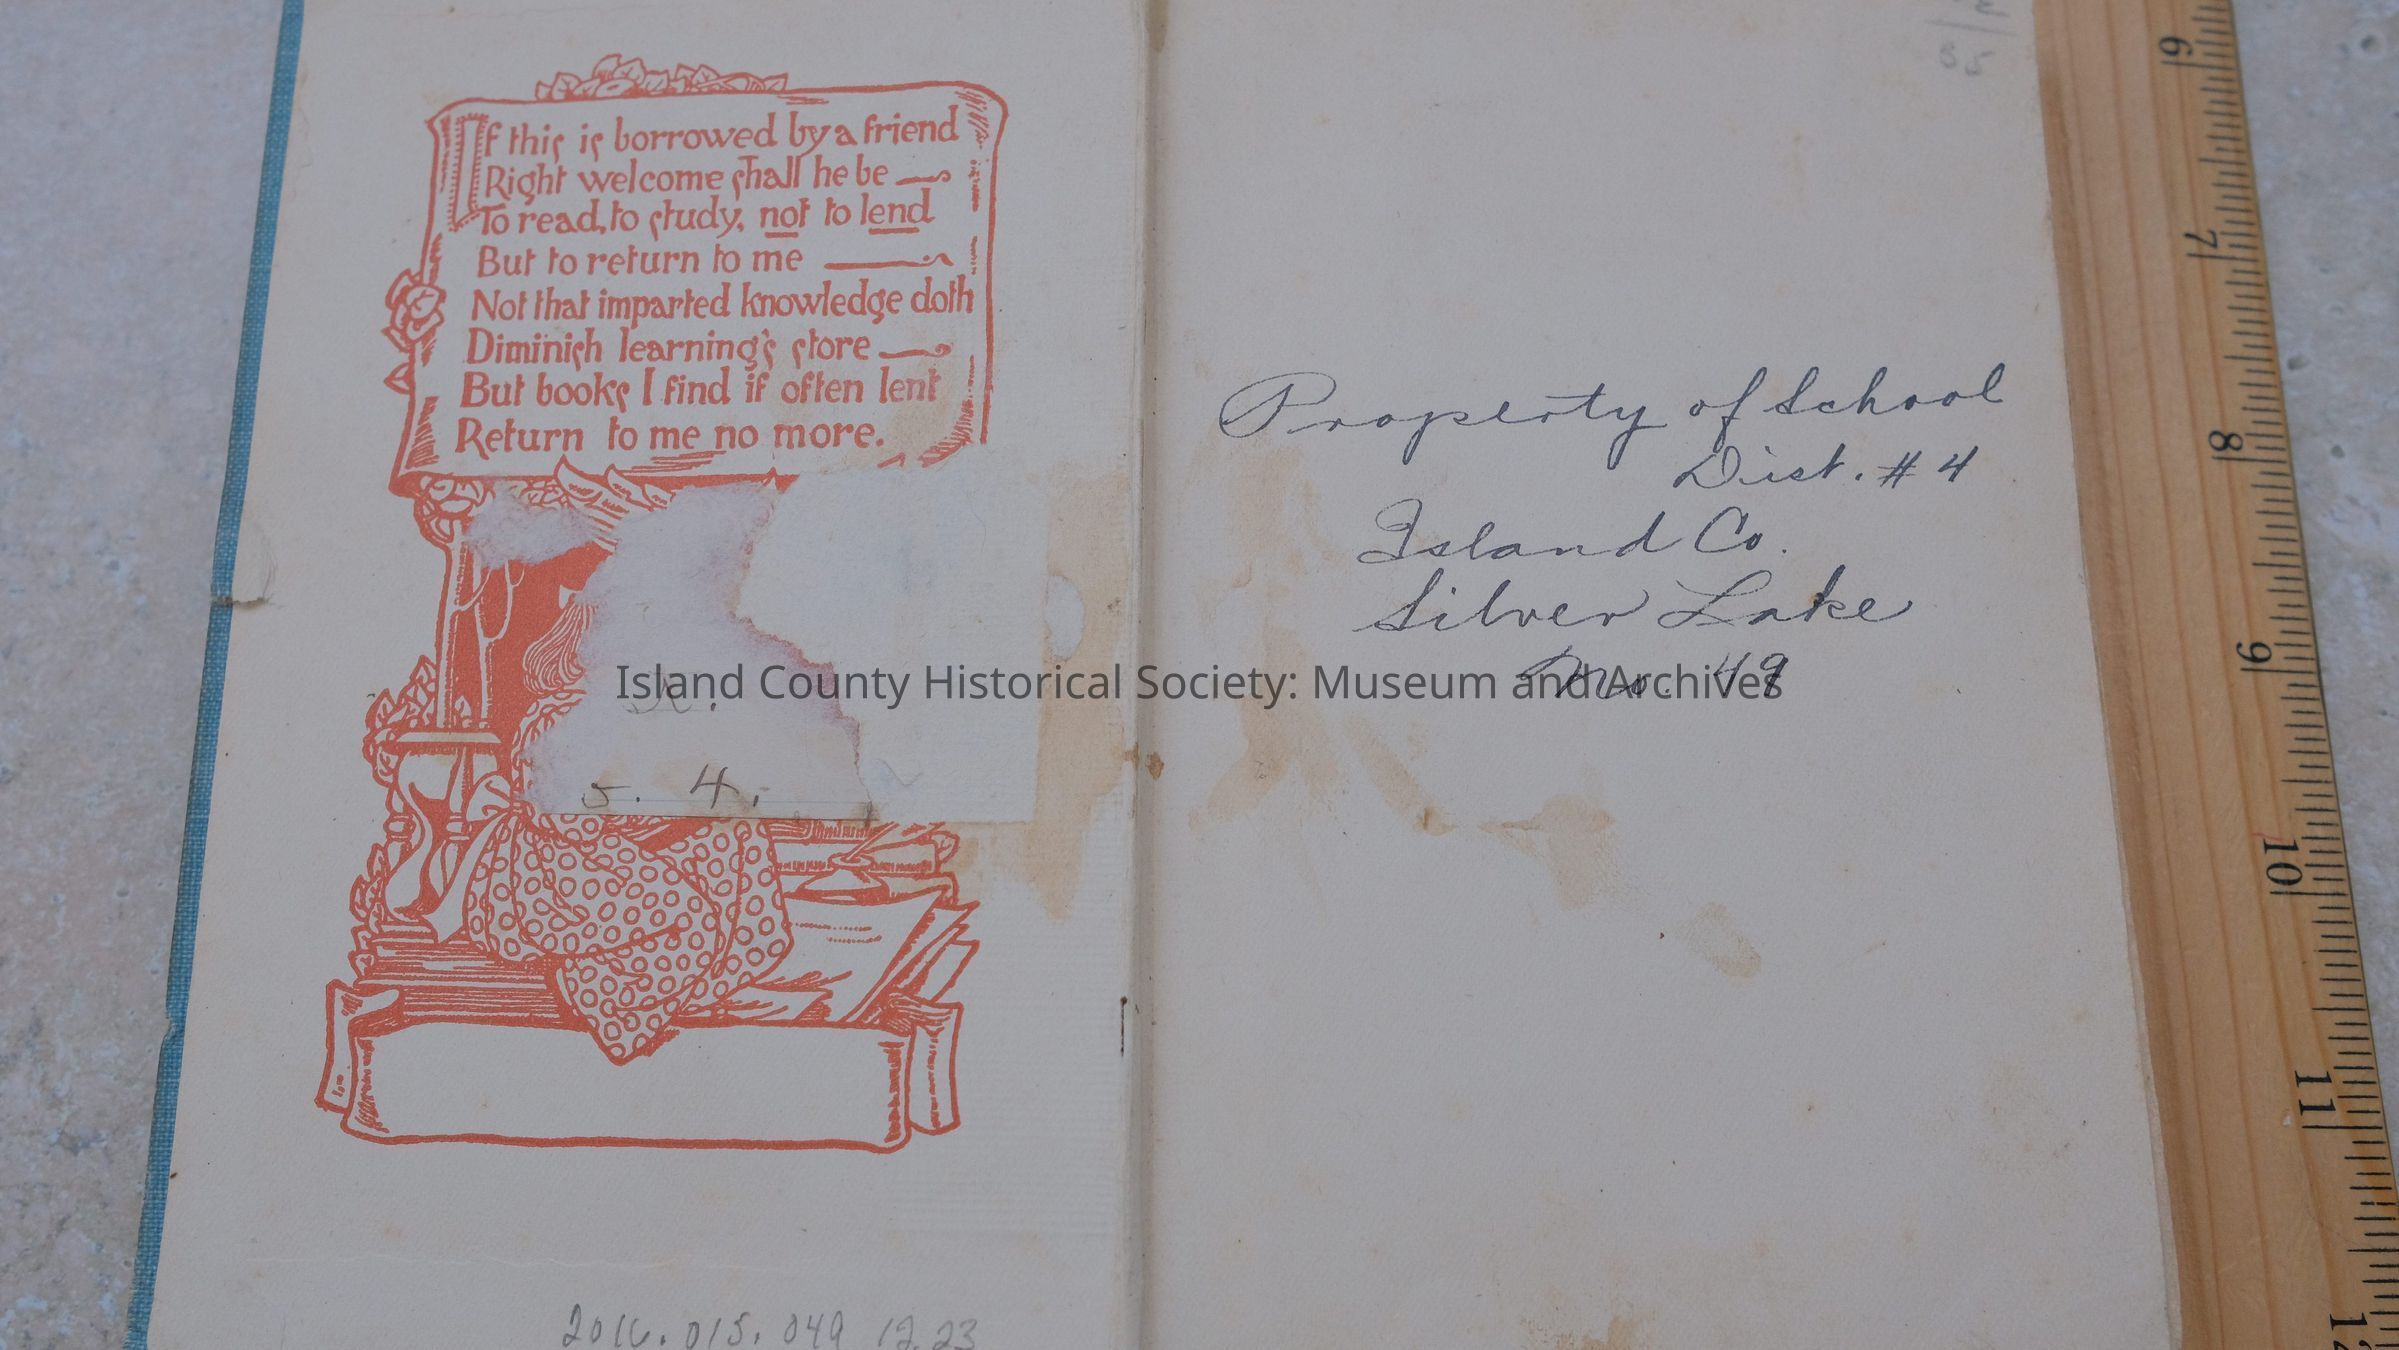 If this is borrowed by a friend
Right welcome shall he be
To read, to study, not to lend
But to return to me
Not that imparted knowledge doth
Diminish learning's store
But books I find if often lent
Return to me no more.
5. 4.
2016.015.049 12.23
Property of School
Dist. #4
Island Co.
Silver Lake
No. 49
Island County Historical Society: Museum and Archives
6
7
8
9
10
11
12